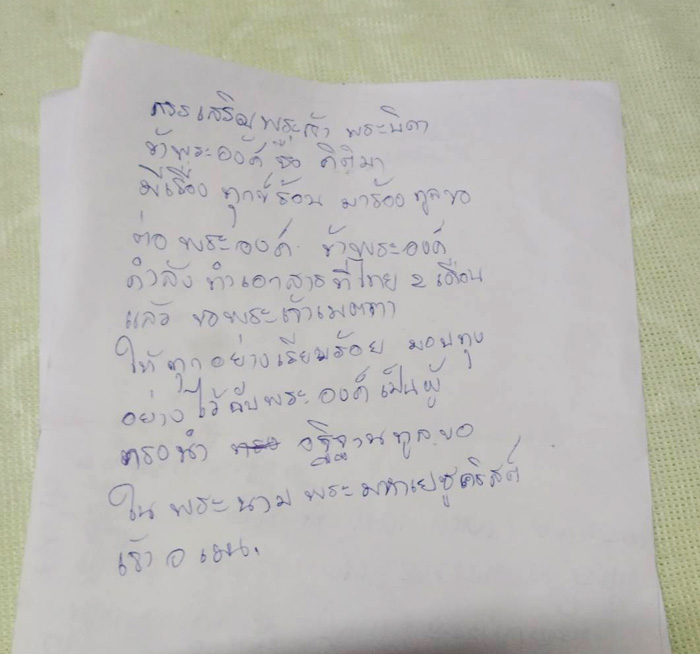 สรรเสริญพระเจ้า พระบิดา
ข้าพระองค์ ชื่อ คิติมา
มีเรื่อง ทุกข์ร้อน มาร้อง ทูลขอ
ต่อ พระองค์ ข้าพระองค์
กำลัง ทำเอกสารที่ไทย 2 เดือน
แล้ว ขอพระเจ้าเมตตา
ให้ทุกอย่างเรียบร้อย มอบทุก
อย่าง ไว้กับพระองค์เป็นผู้
ทรงนำ อธิฐานทูลขอ
ใน พระนาม พระมหาเยซูคริสต์
เจ้า อเมน.